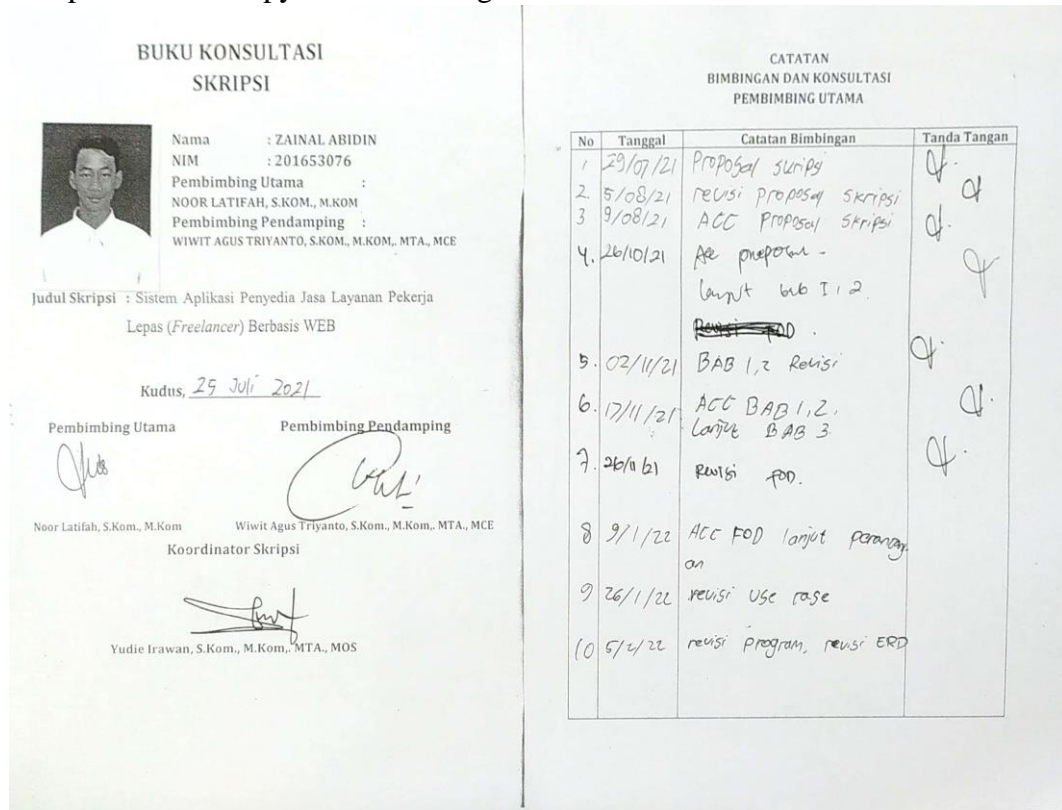 BUKU KONSULTASI
SKRIPSI
Nama : ZAINAL ABIDIN
NIM : 201653076
Pembimbing Utama :
NOOR LATIFAH, S.KOM., M.KOM
Pembimbing Pendamping :
WIWIT AGUS TRIYANTO, S.KOM., M.KOM,. MTA., MCE
Judul Skripsi : Sistem Aplikasi Penyedia Jasa Layanan Pekerja
Lepas (Freelancer) Berbasis WEB
Kudus, 25 Juli 2021
Pembimbing Utama Pembimbing Pendamping
Noor Latifah, S.Kom., M.Kom Wiwit Agus Triyanto, S.Kom., M.Kom,. MTA., MCE
Koordinator Skripsi
Yudie Irawan, S.Kom., M.Kom,. MTA., MOS
CATATAN
BIMBINGAN DAN KONSULTASI
PEMBIMBING UTAMA
No Tanggal Catatan Bimbingan Tanda Tangan
1 29/07/21 Proposal skripsi
2. 5/08/21 revisi proposal skripsi
3 9/08/21 ACC Proposal skripsi
4. 26/10/21 Acc proposal -
lanjut bab I, 2.
5. 02/11/21 BAB 1,2 Revisi
6. 17/11/21 ACC BAB 1,2.
Lanjut BAB 3
7. 26/11/21 Revisi FOD.
8 9/1/22 ACC FOD lanjut perancang
an
9 26/1/22 revisi use case
10 5/2/22 revisi program, revisi ERD